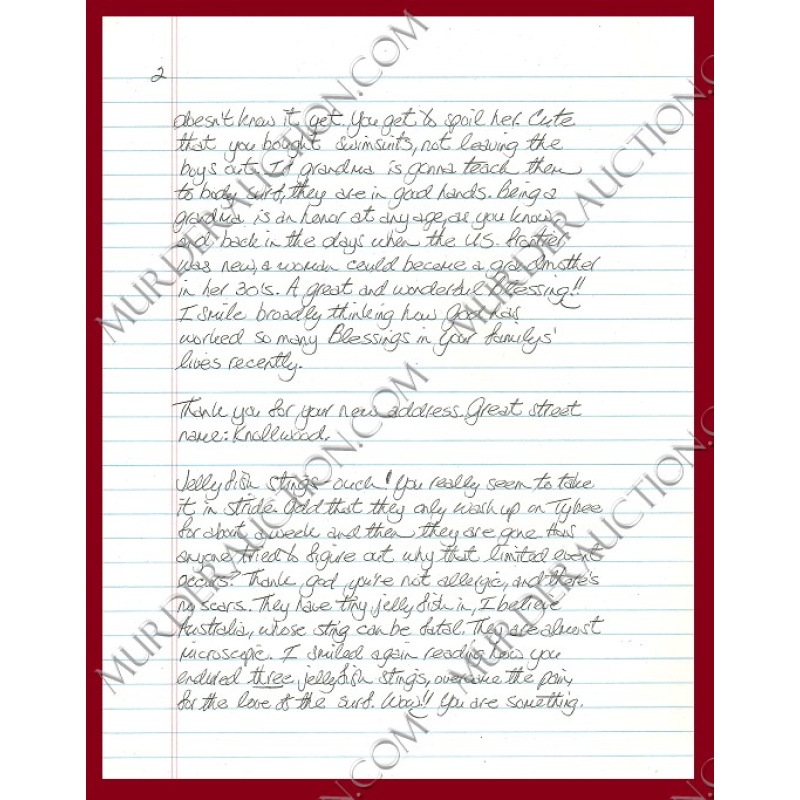 2
doesn't know it yet. You get to spoil her. Cute
that you bought swimsuits, not leaving the
boys out. If grandma is gonna teach them
to body surf, they are in good hands. Being a
grandma is an honor at any age, as you know,
and back in the days when the U.S. frontier
was new, a woman could become a grandmother
in her 30's. A great and wonderful Blessing!!
I smile broadly thinking how God has
worked so many Blessings in your familys'
lives recently.
Thank you for your new address. Great street
name: Knollwood.
Jellyfish stings - ouch! You really seem to take
it in stride. Odd that they only wash up on Tybee
for about a week and then they are gone. Has
anyone tried to figure out why that limited event
occurs? Thank god you're not allergic, and there's
no scars. They have tiny jellyfish in, I believe
Australia, whose sting can be fatal. They are almost
microscopic. I smiled again reading how you
endured three jellyfish stings, overcame the pain,
for the love of the surf. Wow!! You are something.
MURDERAUCTION.COM
MURDERAUCTION.COM
MURDERAUCTION.COM
MURDERAUCTION.COM